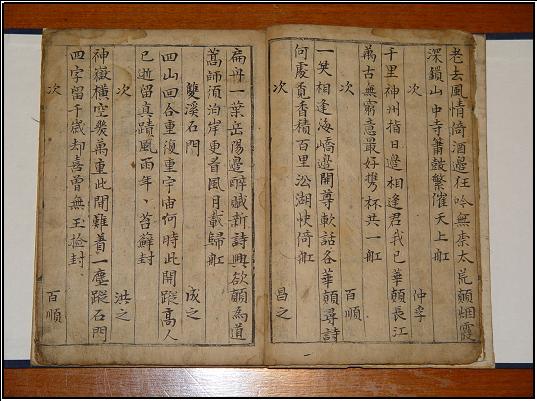 老去風情倚酒邊狂吟無柰太荒顛烟霞
深鎖山中寺簫鼓繁催天上舡
次 仲孚
千里神州指日邊相逢君我已華顛長江
萬古無窮意最好携杯共一舡
次 百順
一笑相逢海嶠邊開尊軟話各華顛尋詩
何處覓香積百里沿湖快倚舡
次 昌之
扁舟一葉岳陽邊醉贓新詩興欲顛為道
蒿師須泊岸更看風月載歸舡
雙溪石門 成之
四山回合重復重宇宙何時此開蹤高人
已逝留真蹟風雨年〻苔蘚封
次 洪之
神嶽橫空幾萬重此間難着一塵蹤石門
四字留千歲却喜曾無玉撿封
次 百順